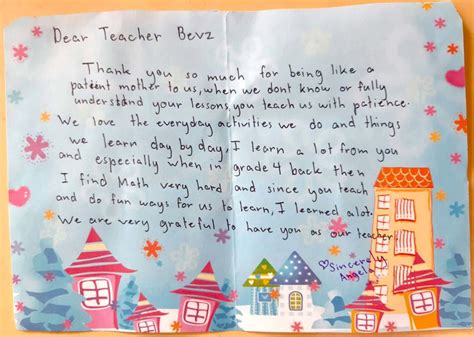 Dear Teacher Bevz
Thank you so much for being like a
patient mother to us, when we dont know or fully
understand your lessons, you teach us with patience.
We love the everyday activities we do and things
we learn day by day, I learn a lot from you
and especially when in grade 4 back then
I find Math very hard and since you teach
and do fun ways for us to learn, I learned alot.
We are very grateful to have you as our teacher
Sincerely
Angela